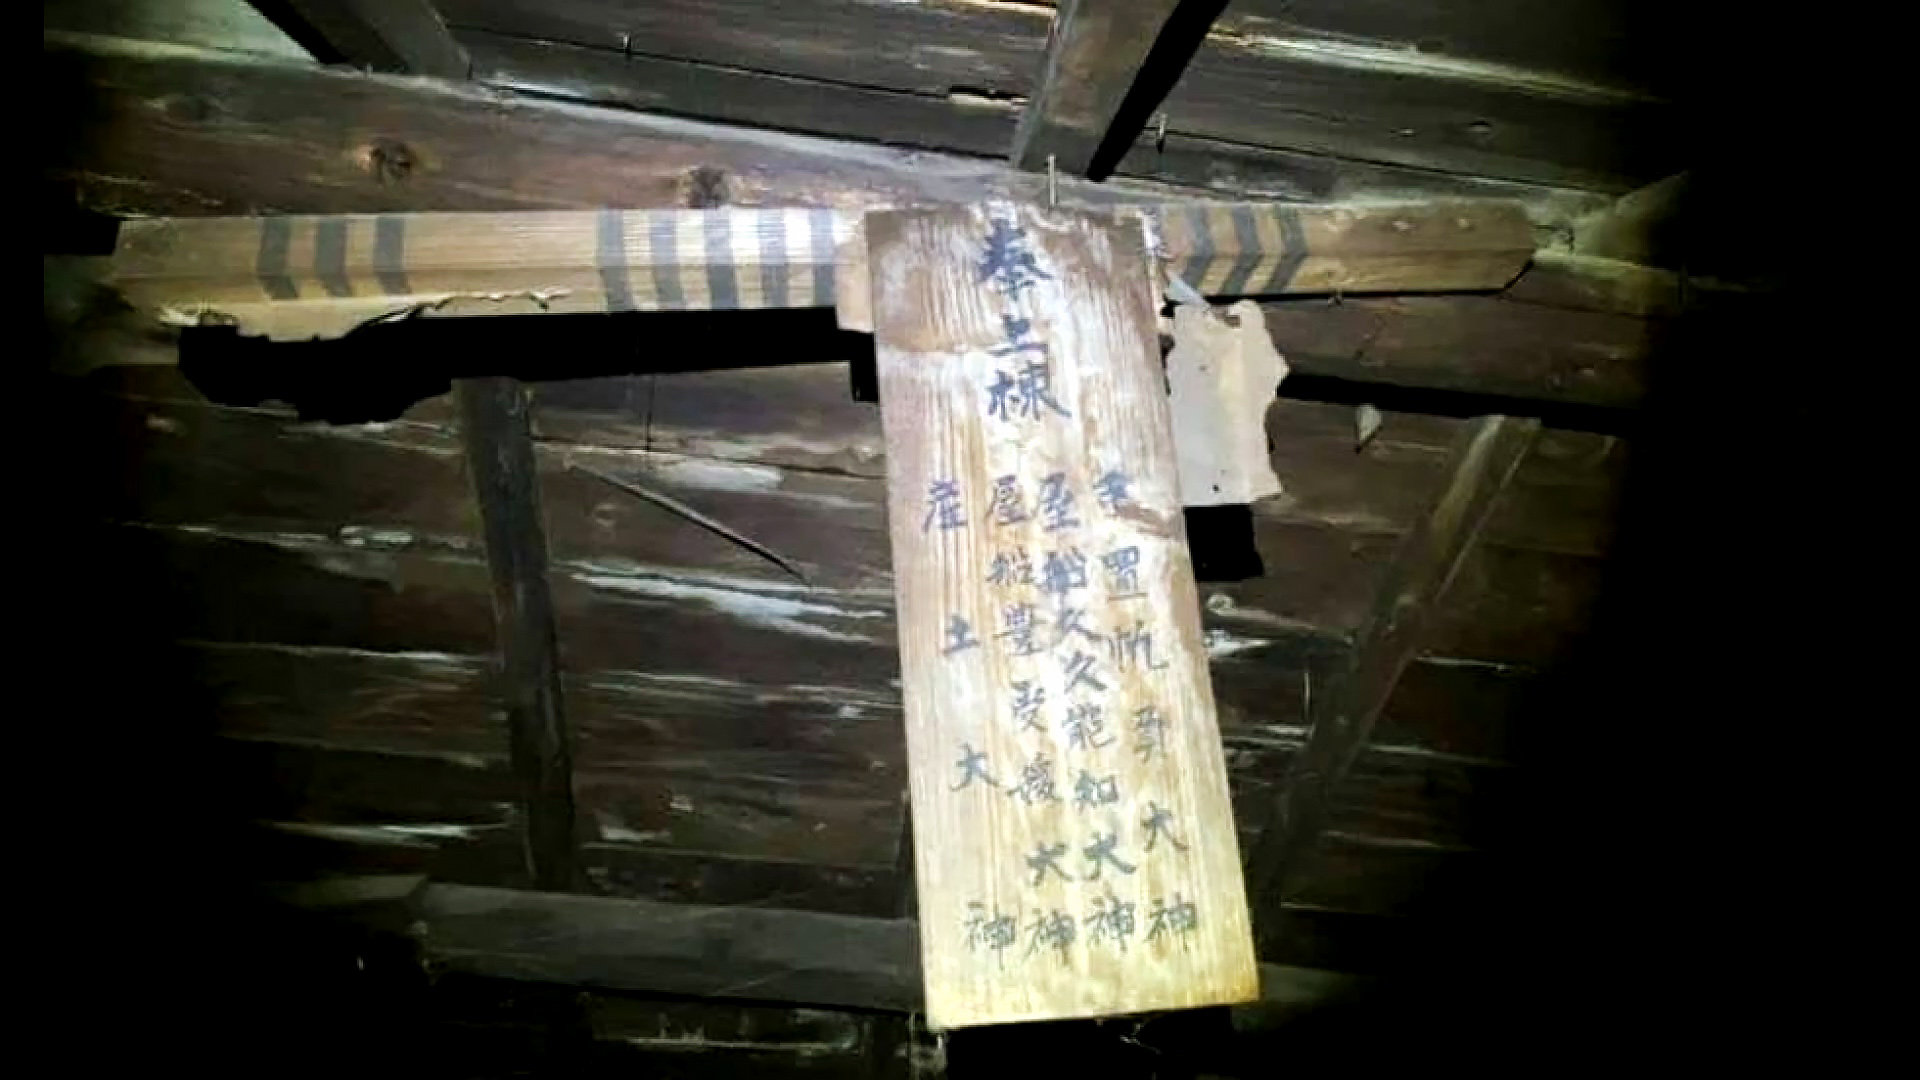 奉上棟
手置帆負大神
屋船久久能知大神
屋船豊受媛大神
産土大神